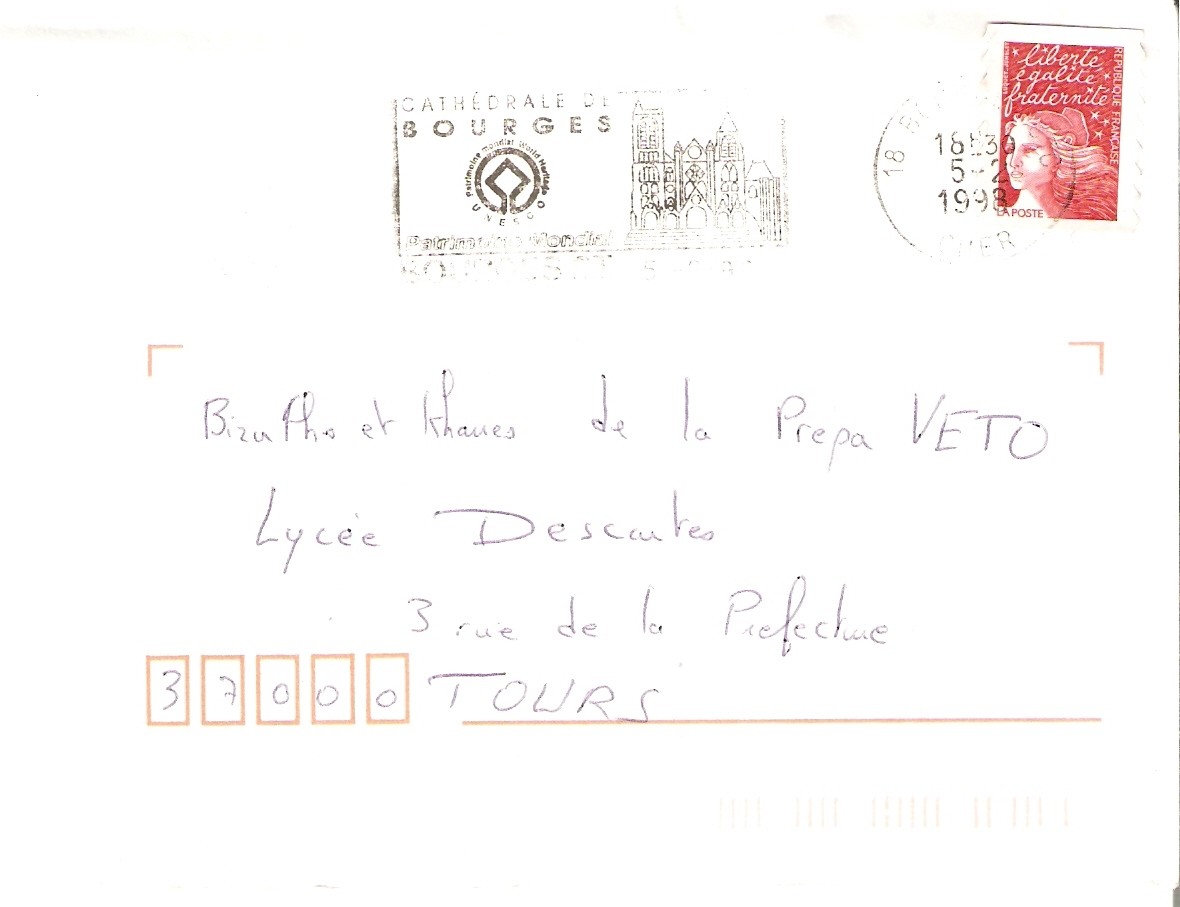 CATHÉDRALE DE
BOURGES
Patrimoine Mondial World Heritage
UNESCO
Patrimoine Mondial
18
18H30
5-2
1998
CHER
liberté
égalité
fraternité
REPUBLIQUE FRANÇAISE
LA POSTE
Bizuths et khâves de la Prepa VETO
Lycée Descartes
3 rue de la Prefecture
37000 TOURS